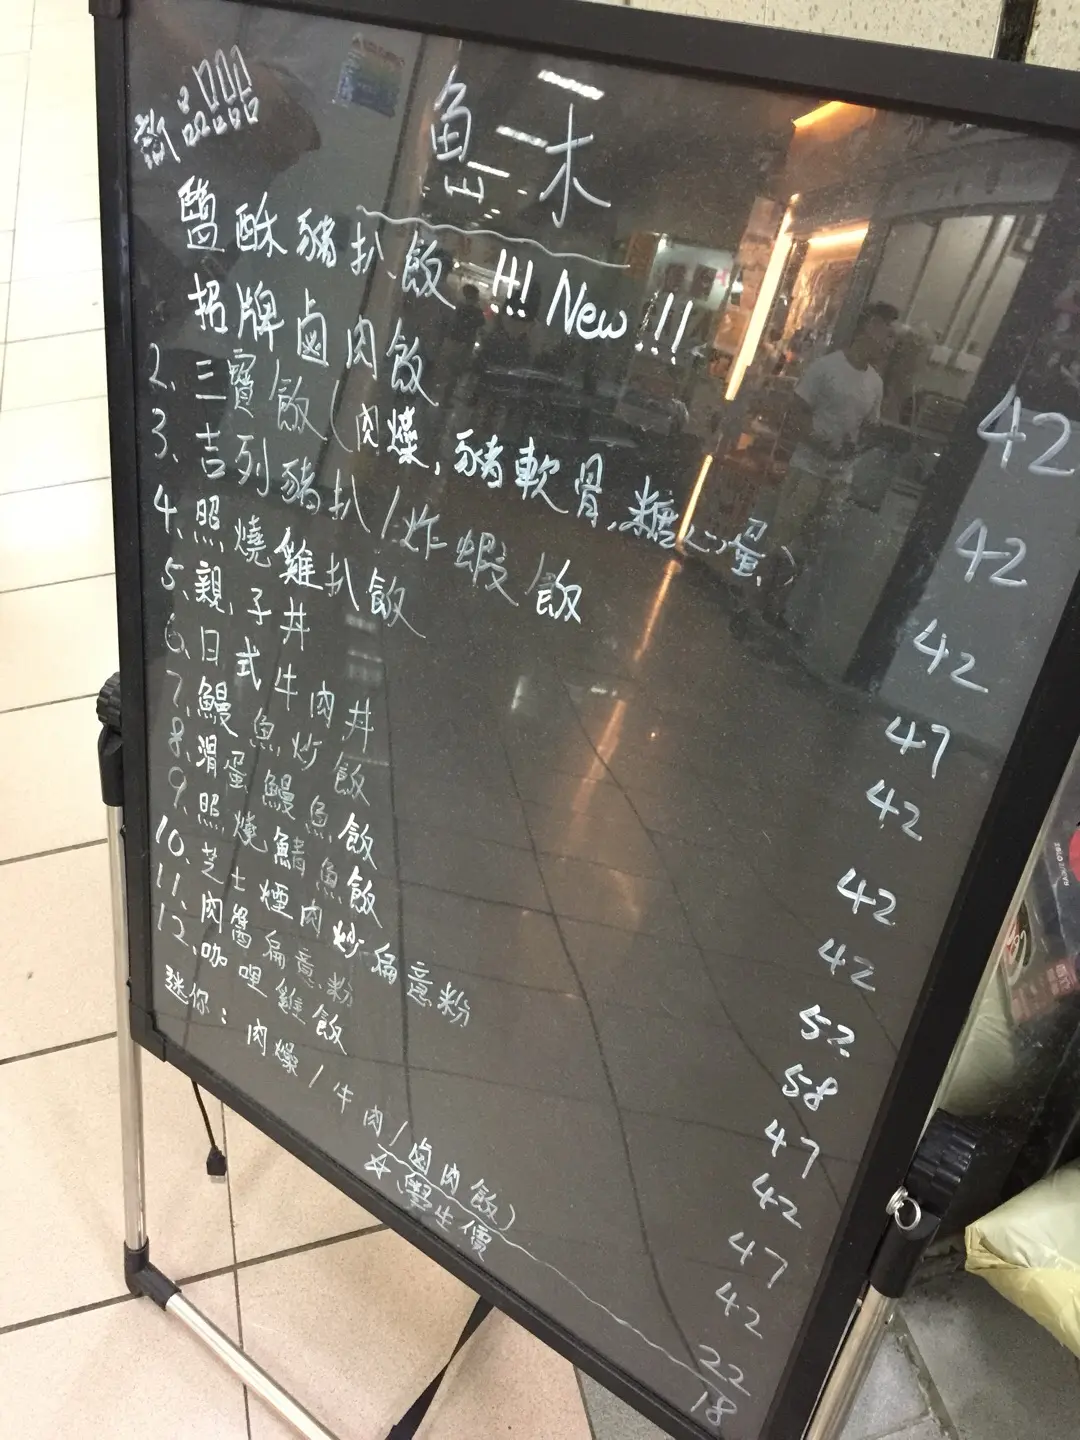 魚木
鹽酥豬扒飯 !!! New !!! 42
招牌鹵肉飯 42
2、三寶飯(肉燥,豬軟骨,糖心蛋) 42
3、吉列豬扒/炸蝦飯 47
4、照燒雞扒飯 42
5、親子丼 42
6、日式牛肉丼 42
7、鰻魚炒飯 52
8、滑蛋鰻魚飯 58
9、照燒鯖魚飯 47
10、芝士煙肉炒扁意粉 42
11、肉醬扁意粉 47
12、咖哩雞飯 42
迷你:肉燥/牛肉/鹵肉飯) 22
☆學生價 18